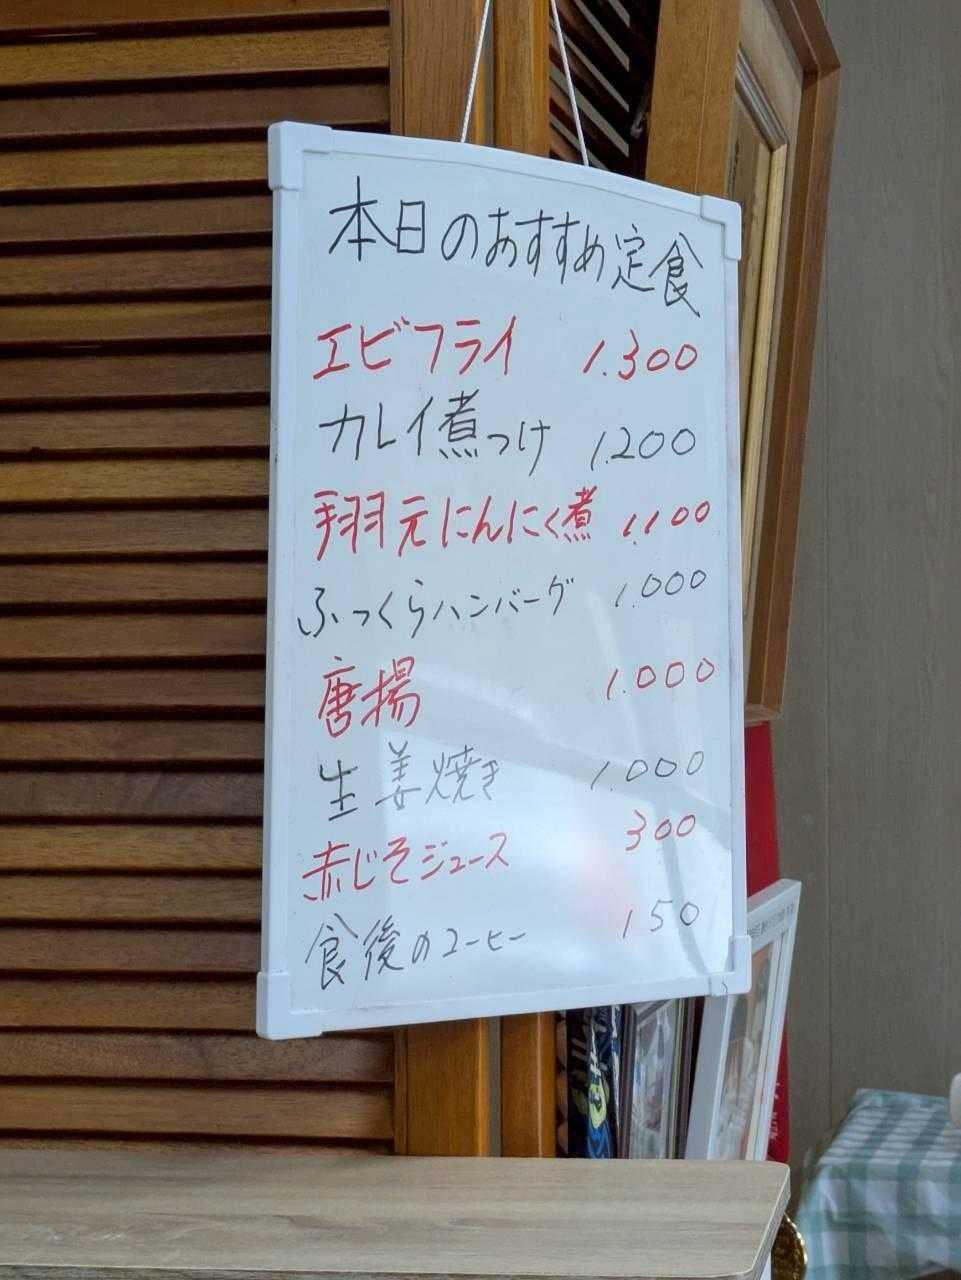 本日のおすすめ定食
エビフライ 1.300
カレイ煮つけ 1.200
手羽元にんにく煮 1.100
ふっくらハンバーグ 1.000
唐揚 1.000
生姜焼き 1.000
赤じそジュース 300
食後のコーヒー 150